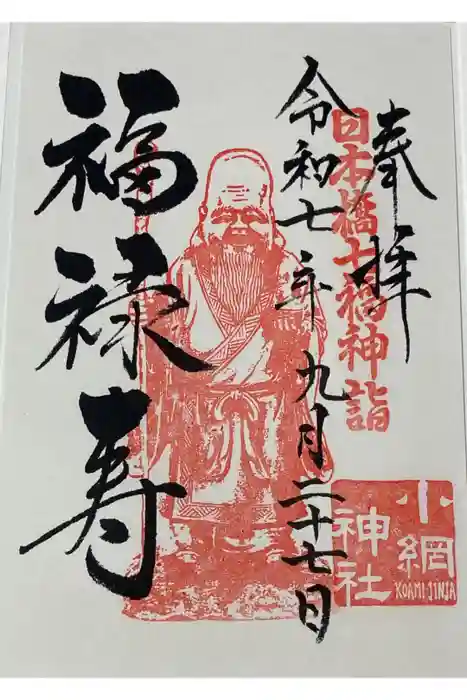 奉拝
日本橋七福神詣
令和七年九月二十七日
福禄寿
小網
神社
KOAMI JINJA